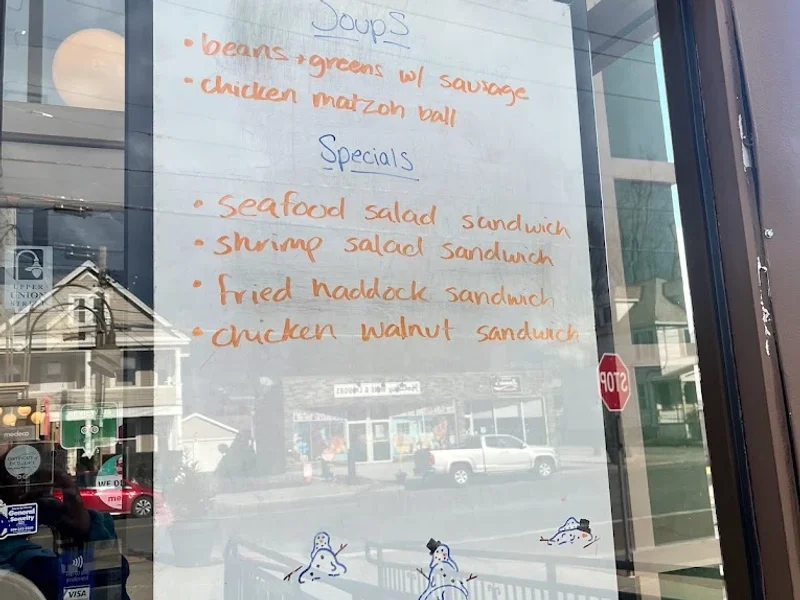 Soups
• beans + greens w/ sausage
• chicken matzoh ball
Specials
• seafood salad sandwich
• shrimp salad sandwich
• fried haddock sandwich
• chicken walnut sandwich
UPPER
UNION
STREET
STOP
WE DE
me
General
Security
VISA